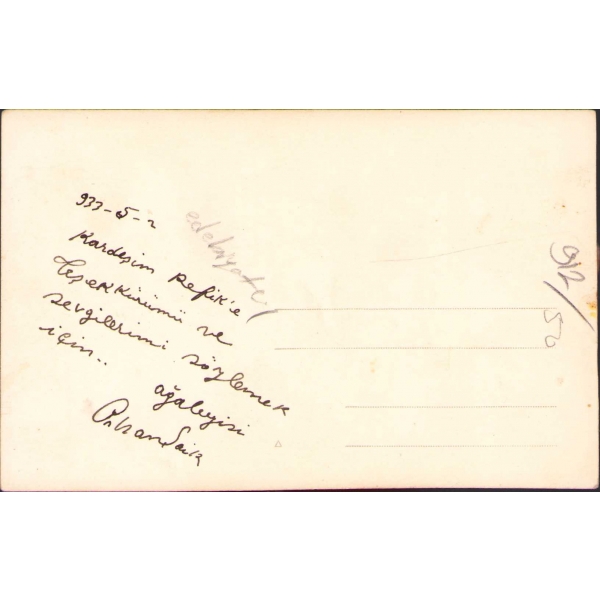 933-5-2
Kardeşim Refik'e
teşekkürümü ve
sevgilerimi söylemek
için..
ağabeyisi
Orhan Saik
edebiyatçı
912/
50